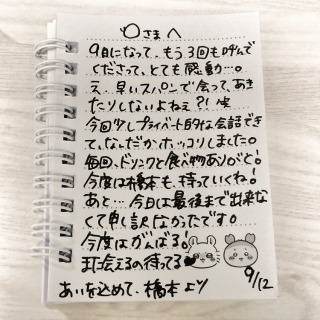 ○さまへ
9月になって、もう3回も呼んで
くださって、とても感動…。
え、早いスパンで会って、あき
たりしないよねぇ?! 笑
今回少しプライベート的な会話でき
て、なんだかホッコリしました。
毎回、ドリンクと食べ物ありがと!
今度は橋本も、持っていくね!
あと…今日は最後まで出来な
くて申し訳なかったです。
今度はがんばる!
また会えるの待ってる♥
9/12
あいを込めて、橋本より